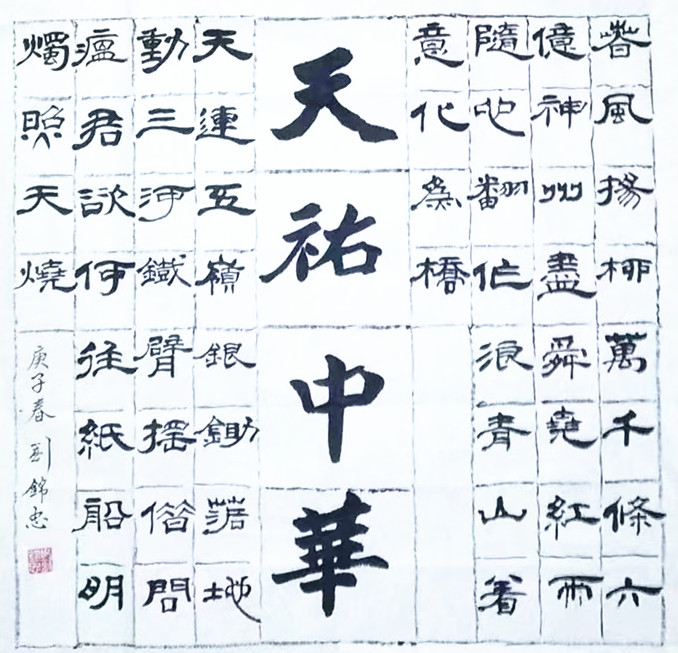 春風揚柳萬千條六
億神州盡舜堯紅雨
隨心翻作浪青山着
意化為橋
天祐中華
天連五嶺銀鋤落地
動三河鐵臂搖借問
瘟君欲何往紙船明
燭照天燒
庚子春劉錦忠